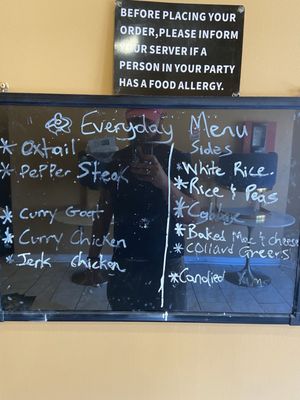 BEFORE PLACING YOUR
ORDER,PLEASE INFORM
YOUR SERVER IF A
PERSON IN YOUR PARTY
HAS A FOOD ALLERGY.
Everyday Menu
* Oxtail
* Pepper Steak
* Curry Goat
* Curry Chicken
* Jerk Chicken
Sides
* White Rice
* Rice & Peas
* Cabbage
* Baked Mac & cheese
* Collard Greens
* Candied